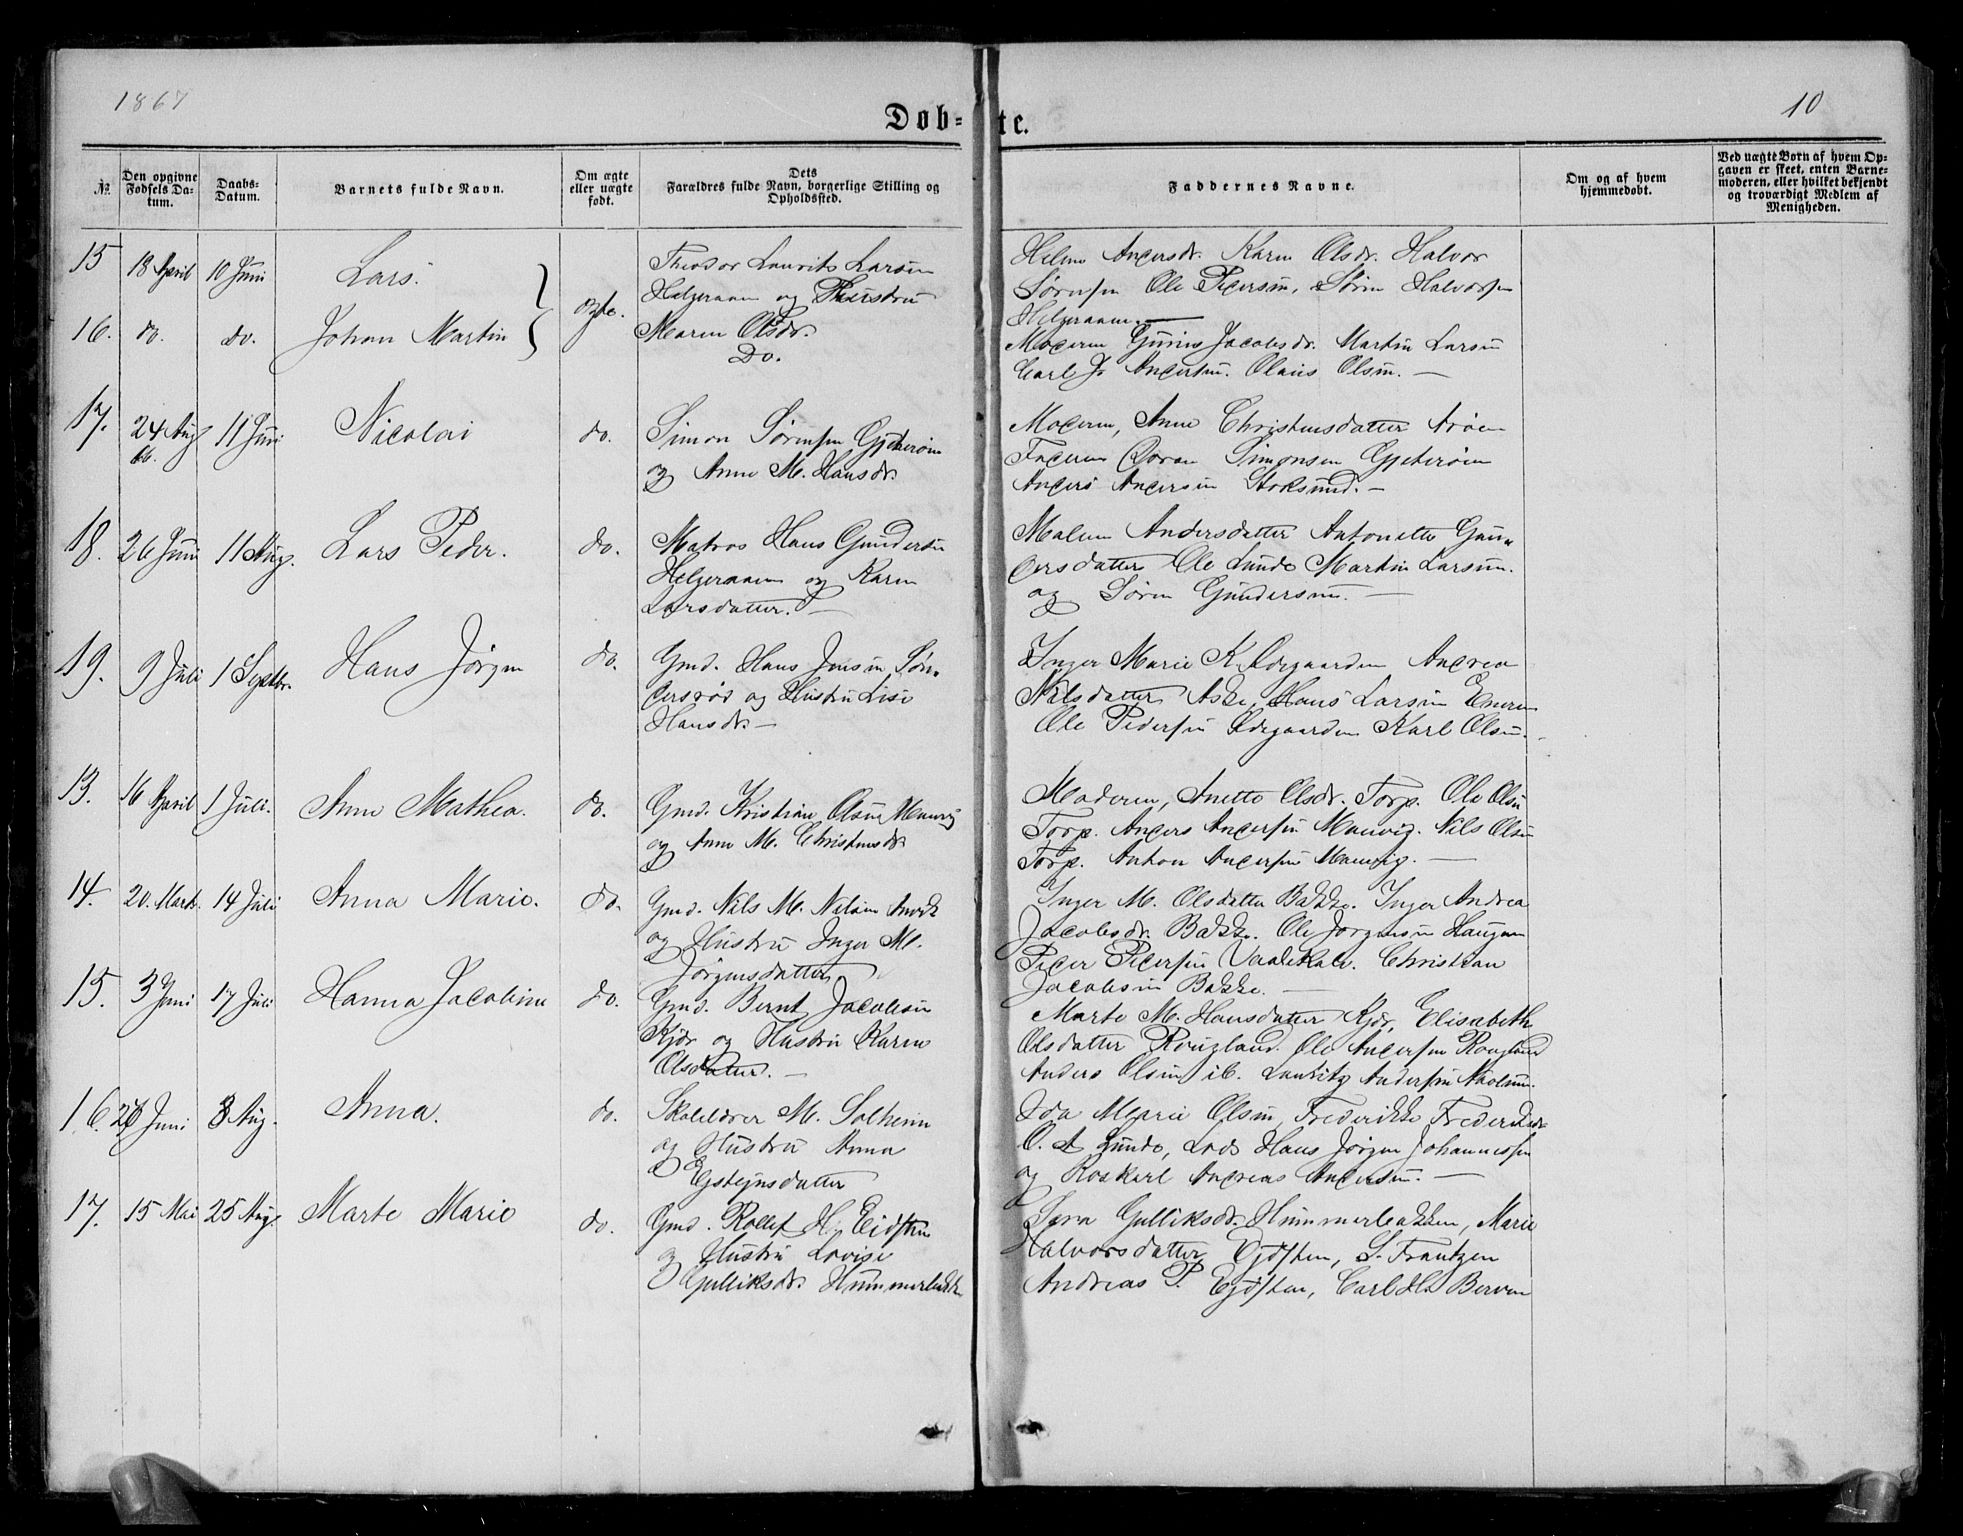 1867
10
Døb=te.
No.
Den opgivne Fødsels Datum.
Daabs-Datum.
Barnets fulde Navn.
Om ægte eller uægte født.
Dets Forældres fulde Navn, borgerlige Stilling og Opholdssted.
Faddernes Navne.
Om og af hvem hjemmedøbt.
Ved uægte Børn af hvem Opgaven er skeet, enten Barnemoderen, eller hvilket bekjendt og troværdigt Medlem af Menigheden.
15 18 April 10 Juni Lars. ægte.
Theodor Laurits Larsen
Helgeraaen og Hustru
Maren Olsdr.
Helene Andersdr. Karen Olsdr. Halvor
Sørensen Ole Pedersen, Søren Halvorsen
Helgeraaen. —
16. do. do. Johan Martin
Do.
Moderen Gunine Jacobsdr. Martin Larsen
Carl J. Andersen. Olaus Olsen. —
17. 24 Aug 66. 11 Juni Nicolai do.
Simon Sørensen Gjeterøen
og Anne M. Hansdr.
Moderen, Anne Christensdatter Arøen
Faderen Simonsen Gjeterøen
Anders Andersen Stoksund. —
18. 26 Juni 11 Aug. Lars Peder. do.
Matros Hans Gundersen
Helgeraaen og Karen
Larsdatter. —
Malene Andersdatter Antonette Gun-
dersdatter Ole Lunde Martin Larsen.
og Søren Gundersen. —
19. 9 Juli 1 Septbr. Hans Jørgen do.
Gmd. Hans Jensen Søn-
dersrød og Hustru Lise
Hansdr. —
Inger Marie K. Ødegaarden Andrea
Nilsdatter Aske, Hans Larsen
Ole Pedersen Ødegaarden Karl Olsen.
13. 16 April 1 Juli. Anne Mathea. do.
Gmd. Kristian Olsen Manvig
og Anne M. Christensdr.
Moderen, Anette Olsdr. Torp. Ole Olsen
Torp. Anders Andersen Manvig. Nils Olsen
Torp. Anton Andersen Manvig. —
14. 20. Marts. 14 Juli Anna Marie. do.
Gmd. Nils M. Nilsen
og Hustru Inger M.
Jørgensdatter
Inger M. Olsdatter Bakke. Inger Andrea
Jacobsdr. Bakke. Ole Jørgensen Haugen
Peder Pedersen Christian
Jacobsen Bakke. —
15. 3 Juni 17 Juli Hanna Jacobine do.
Gmd. Bernt Jacobsen
Kjær og Hustru Karen
Olsdatter. —
Marte M. Hansdatter Kjær, Elisabeth
Olsdatter Rougland. Ole Andersen Rougland
Anders Olsen ib. Lauritz Andersen
16. 26 Juni 8 Aug. Anna. do.
Skolelærer M. Solheim
og Hustru Anna
Eysteinsdatter
Ida Marie Olsen, Frederikke Frederiksdr.
O. A Lunde, Lods Hans Jørgen Johannessen
og Roskarl Andreas Andersen. —
17. 15 Mai 25 Aug. Marte Marie do.
Gmd. Rollef H. Eidsten
og Hustru Lovise
Gulliksdr. Hummerbakken
Sara Gulliksdr. Hummerbakken, Marie
Halvorsdatter Ejdsten, S. Frantzen
Andreas P. Ejdsten, Carl Berven